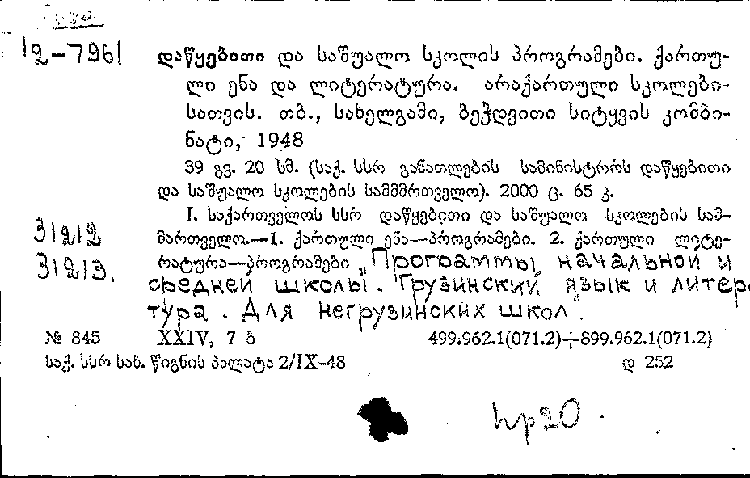 12-7961
დაწყებითი და საშუალო სკოლის პროგრამები. ქართუ-
ლი ენა და ლიტერატურა. არაქართული სკოლები-
სათვის. თბ., სახელგამი, ბეჭდვითი სიტყვის კომბი-
ნატი, 1948
39 გვ. 20 სმ. (საქ. სსრ განათლების სამინისტროს დაწყებითი
და საშუალო სკოლების სამმმრთველო). 2000 ც. 65 კ.
I. საქართველოს სსრ დაწყებითი და საშუალო სკოლების სამ-
მართველო.—1. ქართული ენა—პროგრამები. 2. ქართული ლიტე-
რატურა—პროგრამები „Программы начальной и
средней школы. Грузинский язык и литер
тура. Для негрузинских школ".
31212
31213.
№ 845 XXIV, 7 ბ 499.962.1(071.2)+899.962.1(071.2)
საქ. სსრ სახ. წიგნის პალატა 2/IX-48 დ 252